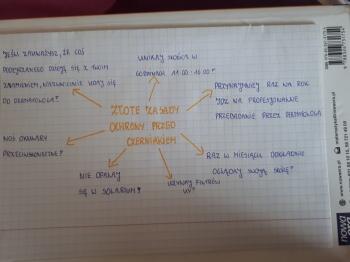 JEŚLI ZAUWAŻYSZ, ŻE COŚ
PODEJRZANEGO DZIEJE SIĘ Z TWOIM
ZNAMIENIEM, KONIECZNIE UDAJ SIĘ
DO DERMATOLOGA!
UNIKAJ SŁOŃCA W
GODZINACH 11.00-16.00!
PRZYNAJMNIEJ RAZ NA ROK
IDŹ NA PROFESJONALNE
PRZEBADANIE PRZEZ DERMATOLOGA
ZŁOTE ZASADY
OCHRONY PRZED
CZERNIAKIEM
NOŚ OKULARY
PRZECIWSŁONECZNE!
RAZ W MIESIĄCU DOKŁADNIE
OGLĄDAJ SWOJĄ SKÓRĘ!
NIE OPALAJ
SIĘ W SOLARIUM!
UŻYWAJ FILTRÓW
UV!